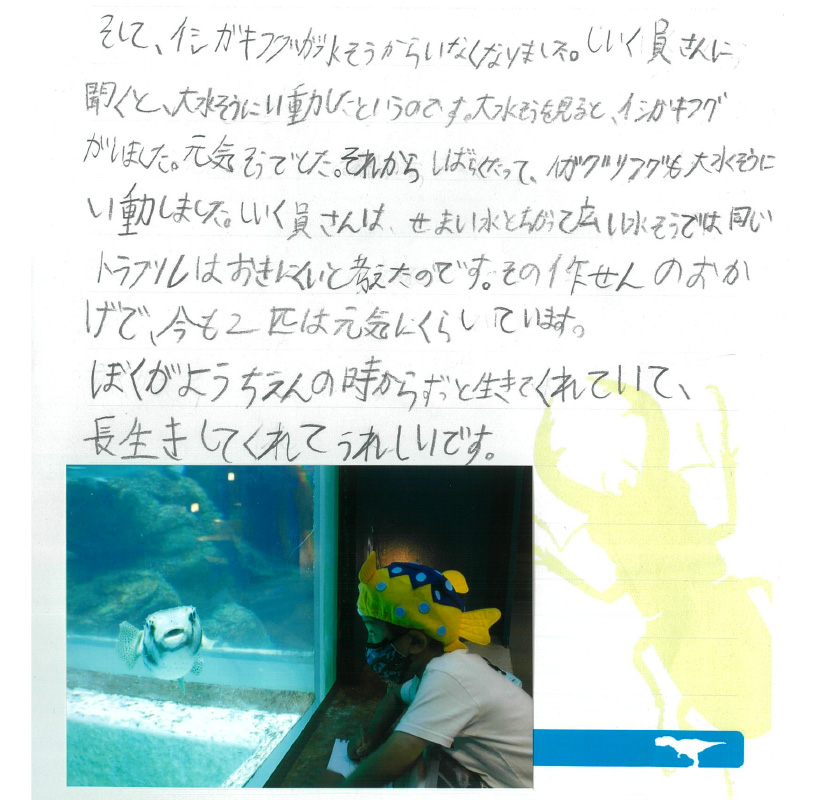 そして、イシガキフグが水そうからいなくなりました。しいく員さんに
聞くと、大水そうにい動したというのです。大水そうを見ると、イシガキフグ
がいました。元気そうでした。それから しばらくたって、イガグリフグも大水そうに
い動しました。しいく員さんは、せまい水とちがって広い水そうでは同じ
トラブルはおきにくいと考えたのです。その作せんのおか
げで、今も2匹は元気にくらしています。
ぼくがようちえんの時からずっと生きてくれていて、
長生きしてくれてうれしいです。